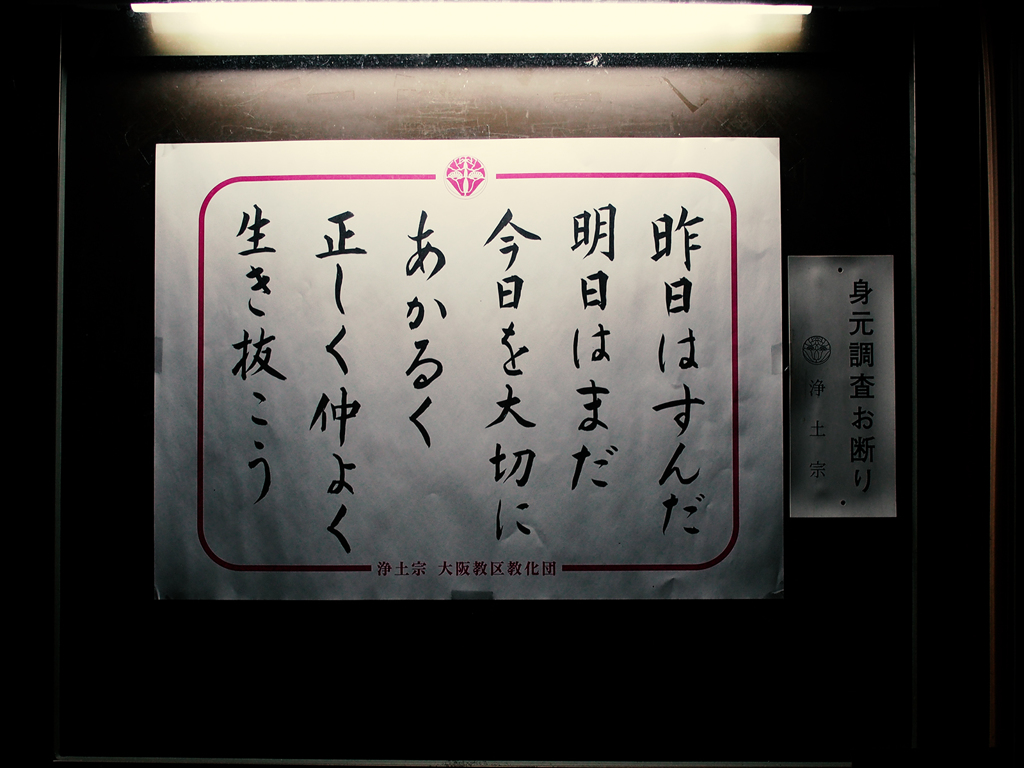 昨日はすんだ
明日はまだ
今日を大切に
あかるく
正しく仲よく
生き抜こう
浄土宗 大阪教区教化団
身元調査お断り
浄土宗